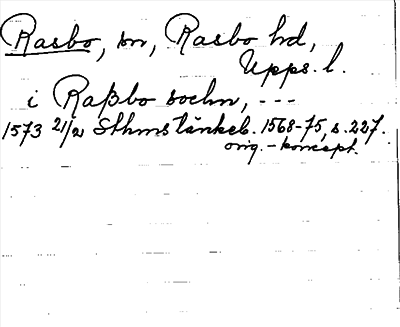 Rasbo, sn, Rasbo hd,
Upps. l.
i Raßbo sochn, ---
1573 21/2 Sthms tänkeb. 1568-75, s. 227.
orig.-koncept.